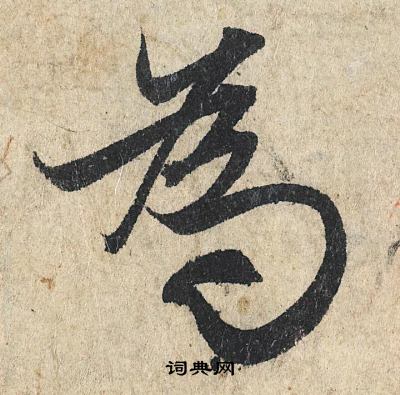 為
词典网